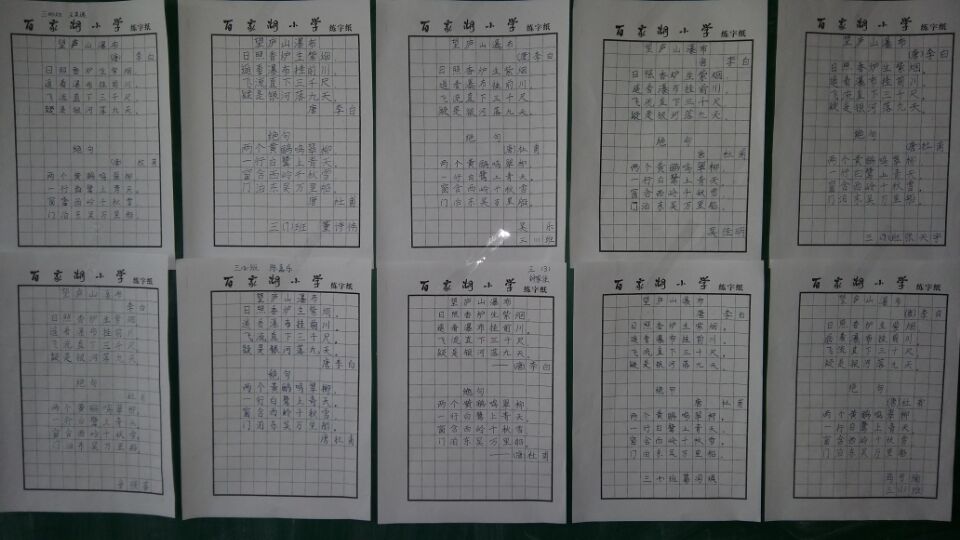 百家湖小学 练字纸
望庐山瀑布
唐 李白
日照香炉生紫烟
遥看瀑布挂前川。
飞流直下三千尺
疑是银河落九天。
绝句
唐 杜甫
两个黄鹂鸣翠柳
一行白鹭上青天。
窗含西岭千秋雪
门泊东吴万里船。
百家湖小学 练字纸
望庐山瀑布
日照香炉生紫烟
遥看瀑布挂前川。
飞流直下三千尺
疑是银河落九天
唐 李白
绝句
两个黄鹂鸣翠柳,
一行白鹭上青天。
窗含西岭千秋雪
门泊东吴万里船。
唐 杜甫
百家湖小学 练字纸
望庐山瀑布
(唐)李白
日照香炉生紫烟
遥看瀑布挂前川。
飞流直下三千尺
疑是银河落九天。
绝句
(唐)杜甫
两个黄鹂鸣翠柳,
一行白鹭上青天。
窗含西岭千秋雪
门泊东吴万里船。
吴乐
百家湖小学 练字纸
望庐山瀑布
唐 李白
日照香炉生紫烟,
遥看瀑布挂前川。
飞流直下三千尺
疑是银河落九天。
绝句
唐 杜甫
两个黄鹂鸣翠柳,
一行白鹭上青天。
窗含西岭千秋雪
门泊东吴万里船。
百家湖小学 练字纸
望庐山瀑布
(唐)李白
日照香炉生紫烟
遥看瀑布挂前川。
飞流直下三千尺
疑是银河落九天。
绝句
(唐)杜甫
两个黄鹂鸣翠柳
一行白鹭上青天。
窗含西岭千秋雪
门泊东吴万里船。
百家湖小学 练字纸
望庐山瀑布
李白
日照香炉生紫烟
遥看瀑布挂前川
飞流直下三千尺
疑是银河落九天。
绝句
杜甫
两个黄鹂鸣翠柳,
一行白鹭上青天
窗含西岭千秋雪
门泊东吴万里船
百家湖小学 练字纸
望庐山瀑布
日照香炉生紫烟,
遥看瀑布挂前川。
飞流直下三千尺,
疑是银河落九天。
唐李白
绝句
两个黄鹂鸣翠柳,
一行白鹭上青天。
窗含西岭千秋雪,
门泊东吴万里船。
唐杜甫
百家湖小学 练字纸
望庐山瀑布
日照香炉生紫烟
遥看瀑布挂前川。
飞流直下三千尺
疑是银河落九天。
——(唐)李白
绝句
两个黄鹂鸣翠柳
一行白鹭上青天。
窗含西岭千秋雪
门泊东吴万里船。
——(唐)杜甫
百家湖小学 练字纸
望庐山瀑布
唐 李白
日照香炉生紫烟,
遥看瀑布挂前川。
飞流直下三千尺,
疑是银河落九天。
绝句
唐 杜甫
两个黄鹂鸣翠柳,
一行白鹭上青天。
窗含西岭千秋雪
门泊东吴万里船。
百家湖小学 练字纸
望庐山瀑布
(唐)李白
日照香炉生紫烟,
遥看瀑布挂前川。
飞流直下三千尺,
疑是银河落九天。
绝句
(唐)杜甫
两个黄鹂鸣翠柳
一行白鹭上青天。
窗含西岭千秋雪
门泊东吴万里船。